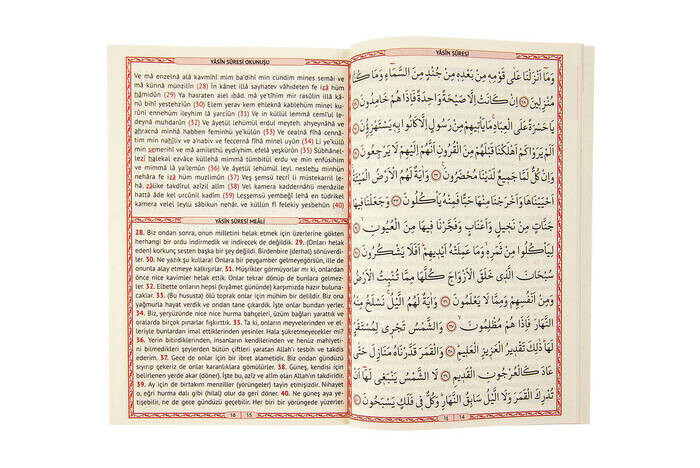 YÂSÎN SÛRESİ OKUNUŞU
Ve mâ enzelnâ alâ kavmihî mim ba'dihî min cündim mines semâi ve
mâ künnâ münzilîn (28) İn kânet illâ sayhatev vâhıdeten fe izâ hüm
hâmidûn (29) Ya hasraten alel ıbâd. mâ ye'tîhim mir rasûlin illâ kâ-
nû bihî yestehziûn (30) Elem yerav kem ehleknâ kablehüm minel ku-
rûni ennehüm ileyhim lâ yarciûn (31) Ve in küllül lemmâ cemî'ul le-
deynâ muhdarûn (32) Ve âyetül lehümül erdul meyteh. ahyeynâhâ ve
ahracnâ minhâ habben feminhü ye'külûn (33) Ve cealnâ fîhâ cennâ-
tim min nahîliv ve a'nabiv ve feccernâ fîhâ minel uyûn (34) Li ye'külû
min semerihî ve mâ amilethü eydîhim. efelâ yeşkürûn (35) Sübhânel-
lezî halekal ezvâce küllehâ mimmâ tümbitül erdu ve min enfüsihim
ve mimmâ lâ ya'lemûn (36) Ve âyetül lehümül leyl. neslehu minhün
nehâra fe izâ hüm muzlimûn (37) Veş şemsü tecrî li müstekarril le-
hâ. zâlike takdîrul azîzil alîm (38) Vel kamera kaddernâhü menâzile
hattâ âde kel urcûnil kadîm (39) Leşşemsü yembeğî lehâ en tüdrikel
kamera velel leylü sâbikun nehâr. ve küllün fî felekiy yesbehûn (40)
YÂSÎN SÛRESİ MEÂLİ
28. Biz ondan sonra, onun milletini helak etmek için üzerlerine gökten
herhangi bir ordu indirmedik ve indirecek de değildik. 29. (Onları helak
eden) korkunç sesten başka bir şey değildi. Birdenbire (derhal) sönüverdi-
ler. 30. Ne yazık şu kullara! Onlara bir peygamber gelmeyegörsün, ille de
onunla alay etmeye kalkışırlar. 31. Müşrikler görmüyorlar mı ki, onlardan
önce nice kavimler helak ettik. Onlar tekrar dönüp de bunlara gelmezler.
32. Elbette onların hepsi (kıyâmet gününde) karşımızda hazır buluna-
caklar. 33. (Bu hususta) ölü toprak onlar için mühim bir delildir. Biz ona
yağmurla hayat verdik ve ondan tane çıkardık. İşte onlar bundan yerler.
34. Biz, yeryüzünde nice nice hurma bahçeleri, üzüm bağları yarattık ve
oralarda birçok pınarlar fışkırttık. 35. Ta ki, onların meyvelerinden ve el-
leriyle bunlardan imal ettiklerinden yesinler. Hala şükretmeyecekler mi?
36. Yerin bitirdiklerinden, insanların kendilerinden ve henüz mahiyeti-
ni bilmedikleri şeylerden bütün çiftleri yaratan Allah'ı tesbih ve takdis
ederim. 37. Gece de onlar için bir ibret alametidir. Biz ondan gündüzü
sıyırıp çekeriz de onlar karanlıklara gömülürler. 38. Güneş, kendisi için
belirlenen yerde akar (döner). İşte bu, azîz ve alîm olan Allah'ın takdiridir.
39. Ay için de birtakım menziller (yörüngeler) tayin etmişizdir. Nihayet
o, eğri hurma dalı gibi (hilal) olur da geri döner. 40. Ne güneş aya ye-
tişebilir, ne de gece gündüzü geçebilir. Her biri bir yörüngede yüzerler.
15
YÂSÎN SÛRESİ
وَمَٓا اَنْزَلْنَا عَلٰى قَوْمِهٖ مِنْ بَعْدِهٖ مِنْ جُنْدٍ مِنَ السَّمَٓاءِ وَمَا كُنَّا
مُنْزِلٖينَ ﴿٢٨﴾ اِنْ كَانَتْ اِلَّا صَيْحَةً وَاحِدَةً فَاِذَا هُمْ خَامِدُونَ ﴿٢٩﴾
يَا حَسْرَةً عَلَى الْعِبَادِ مَا يَأْتٖيهِمْ مِنْ رَسُولٍ اِلَّا كَانُوا بِهٖ يَسْتَهْزِؤُنَ ﴿٣٠﴾
اَلَمْ يَرَوْا كَمْ اَهْلَكْنَا قَبْلَهُمْ مِنَ الْقُرُونِ اَنَّهُمْ اِلَيْهِمْ لَا يَرْجِعُونَ ﴿٣١﴾
وَاِنْ كُلٌّ لَمَّا جَمٖيعٌ لَدَيْنَا مُحْضَرُونَ ﴿٣٢﴾ وَاٰيَةٌ لَهُمُ الْاَرْضُ الْمَيْتَةُ
اَحْيَيْنَاهَا وَاَخْرَجْنَا مِنْهَا حَبًّا فَمِنْهُ يَأْكُلُونَ ﴿٣٣﴾ وَجَعَلْنَا فٖيهَا
جَنَّاتٍ مِنْ نَخٖيلٍ وَاَعْنَابٍ وَفَجَّرْنَا فٖيهَا مِنَ الْعُيُونِ ﴿٣٤﴾
لِيَأْكُلُوا مِنْ ثَمَرِهٖ وَمَا عَمِلَتْهُ اَيْدٖيهِمْ اَفَلَا يَشْكُرُونَ ﴿٣٥﴾
سُبْحَانَ الَّذٖي خَلَقَ الْاَزْوَاجَ كُلَّهَا مِمَّا تُنْبِتُ الْاَرْضُ
وَمِنْ اَنْفُسِهِمْ وَمِمَّا لَا يَعْلَمُونَ ﴿٣٦﴾ وَاٰيَةٌ لَهُمُ الَّيْلُ نَسْلَخُ مِنْهُ
النَّهَارَ فَاِذَا هُمْ مُظْلِمُونَ ﴿٣٧﴾ وَالشَّمْسُ تَجْرٖي لِمُسْتَقَرٍّ
لَهَا ذٰلِكَ تَقْدٖيرُ الْعَزٖيزِ الْعَلٖيمِ ﴿٣٨﴾ وَالْقَمَرَ قَدَّرْنَاهُ مَنَازِلَ حَتّٰى
عَادَ كَالْعُرْجُونِ الْقَدٖيمِ ﴿٣٩﴾ لَا الشَّمْسُ يَنْبَغٖي لَهَٓا اَنْ
تُدْرِكَ الْقَمَرَ وَلَا الَّيْلُ سَابِقُ النَّهَارِ وَكُلٌّ فٖي فَلَكٍ يَسْبَحُونَ ﴿٤٠﴾
14